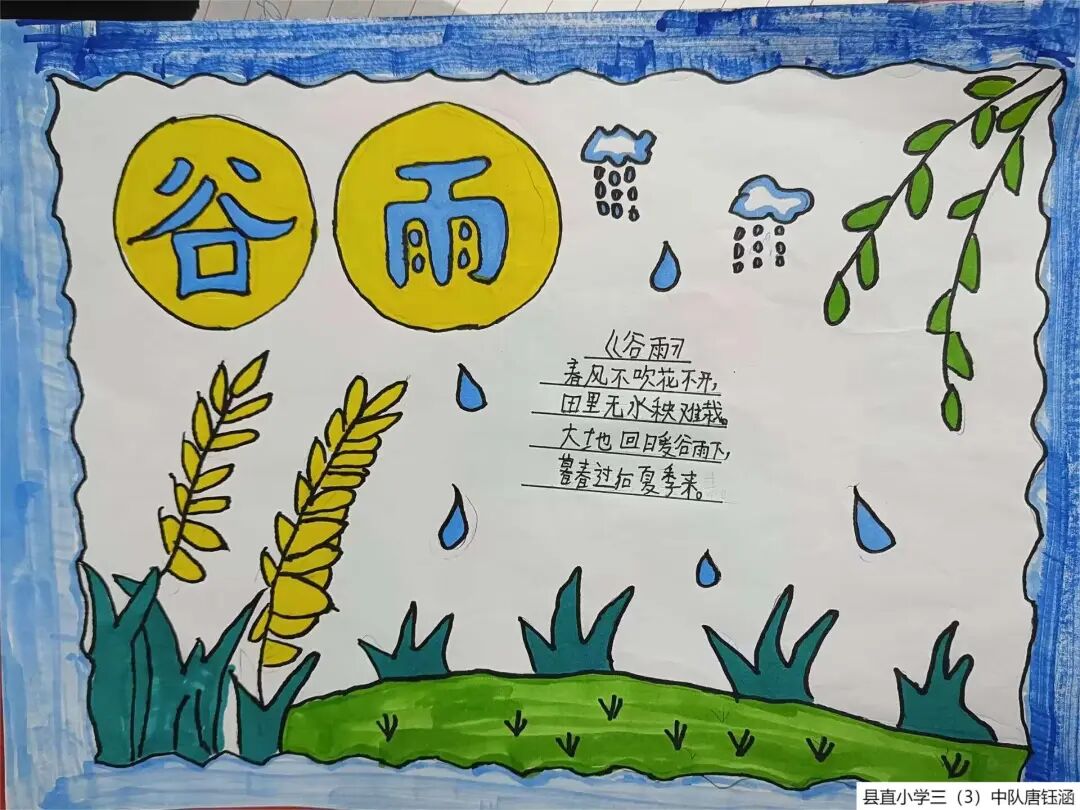 谷雨
《谷雨》
春风不吹花不开,
田里无水秧难栽。
大地回日暖谷雨下,
暮春过后夏季来。
县直小学三（3）中队唐钰涵